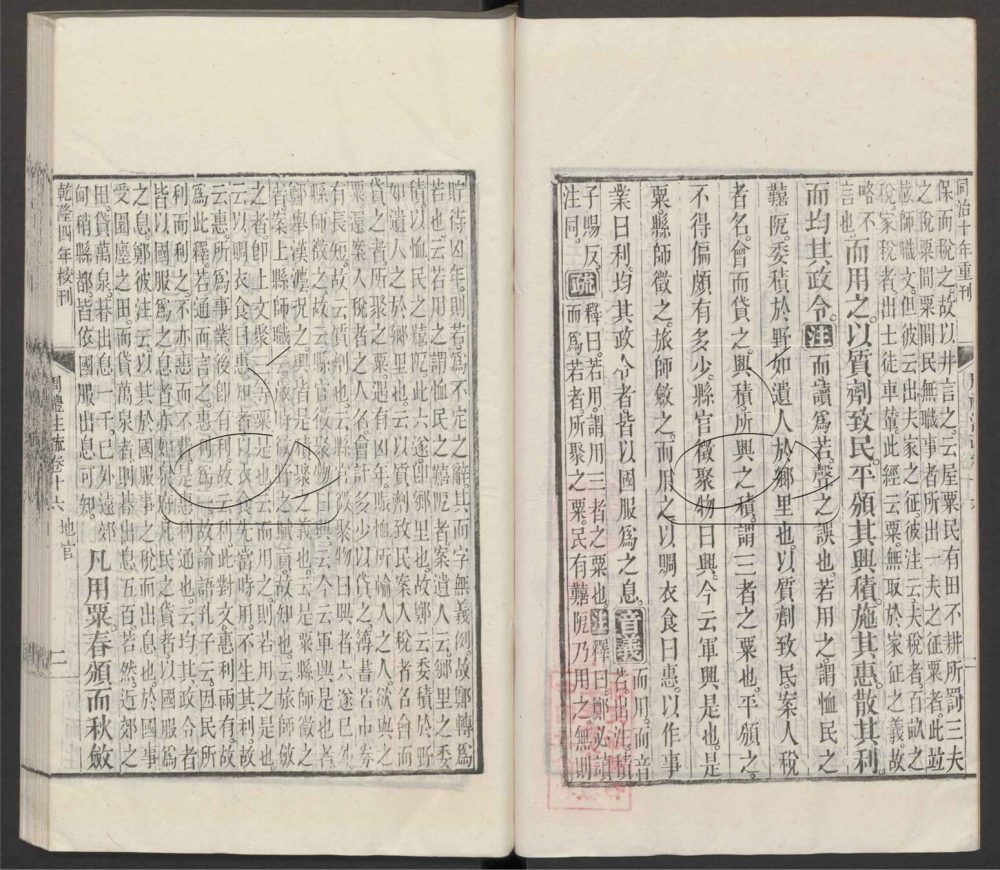 同治十年重刊
保而稅之故以井言之云屋粟民有田不耕所罰三夫
之稅粟間粟間民無職事者所出一夫之征粟者此竝
載師職文但彼云出夫家之征彼注云夫稅者百畝之
稅家稅者出士徒車輦此經云粟無取於家征之義故
略不
言也而用之以質劑致民平頒其興積施其惠散其利
而均其政令注而讀爲若聲之誤也若用之謂恤民之
囏阨委積於野如遺人於鄉里也以質劑致民案入稅
者名會而貸之興積所興之積謂三者之粟也平頒之
不得偏頗有多少縣官徵聚物曰興今云軍興是也是
粟縣師徵之旅師斂之而用之以賙衣食曰惠以作事
業曰利均其政令者皆以國服爲之息音義而用而音
若出注積
子賜反
注同疏釋曰若用謂用三者之粟也注釋曰鄭必讀
而爲若者所聚之粟民有囏阨乃用之無則
貯待凶年則若爲不定之辭其而字無義例故鄭轉爲
若也云若用之謂恤民之囏阨者案遺人云鄉里之委
積以恤民之囏阨此六遂卽鄉里也故鄭云委積於野
如遺人之於鄉里也云以質劑致民案入稅者名會而
貸之者所聚之粟還有凶年賑恤所輸入之人欲與之
粟還案入稅者之人名會計多少以貸之簿書若市券
有長短故云質劑也云縣官徵聚物曰興者六遂已外
縣師徵之故云縣官徵聚物曰興云今云軍興是也者
鄭舉漢灋況之義皆是相聚之義也云是粟縣師徵之
者案上縣師職云歲時徵野之賦貢故知也云旅師斂
之者卽上文聚三等粟是也云而用之則若用之是也
云以賙衣食曰惠惠者以衣食先當時用不生其利故
云惠所爲事業後卽有利故云利此對文惠利兩有故
爲此釋若通而言之惠利爲一故論語孔子云因民所
利而利之不亦惠而不費是惠利通也云均其政令者
皆以國服爲之息者亦如泉府凡民之貸者以國服爲
之息鄭彼注云以其於國服事之稅而出息也於國事
受園廛之田而貸萬泉者則朞出息五百若然近郊之
田貸萬泉朞出息一千已外遠郊
甸稍縣都皆依國服出息可知凡用粟春頒而秋斂
乾隆四年校刊
周禮注疏卷十六 地官
二